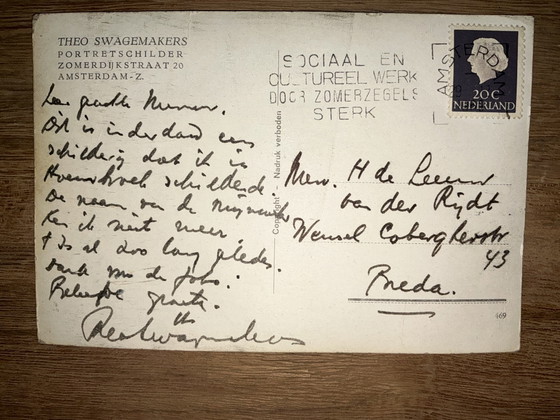 THEO SWAGEMAKERS
PORTRETSCHILDER
ZOMERDIJKSTRAAT 20
AMSTERDAM-Z.
SOCIAAL EN
CULTUREEL WERK
DOOR ZOMERZEGELS
STERK
AMSTERDAM
20 C
NEDERLAND
Copyright - Nadruk verboden
Dit is inderdaad een
schilderij dat ik in
schilderde.
De naam van de
ken ik niet meer,
't is al zoo lang geleden.
dank voor de foto.
Beleefde groeten.
Theo Swagemakers
Mevr. H de Leeuw
van der Rijdt
Wensel Cobergherstr
43
Breda.
469